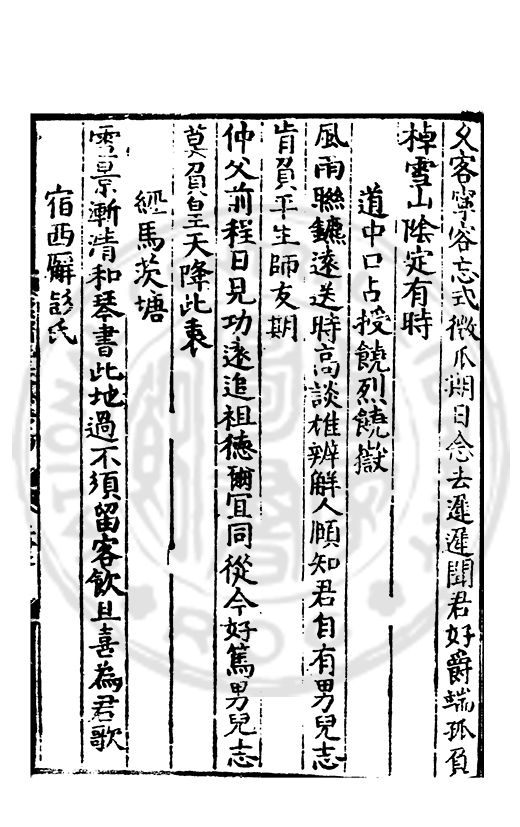 久客寧容忘式微瓜期日念去遲遲聞君好爵端孤負
棹雪山陰定有時
道中口占授饒烈饒嶽
風雨聯鑣遠送時高談雄辨解人頤知君自有男兒志
肯負平生師友期
仲父前程日見功遠追祖德爾宜同從今好篤男兒志
莫負皇天降此衷
經馬茨塘
雪景漸清和琴書此地過不須留客飲且喜為君歌
宿西僻彭氏